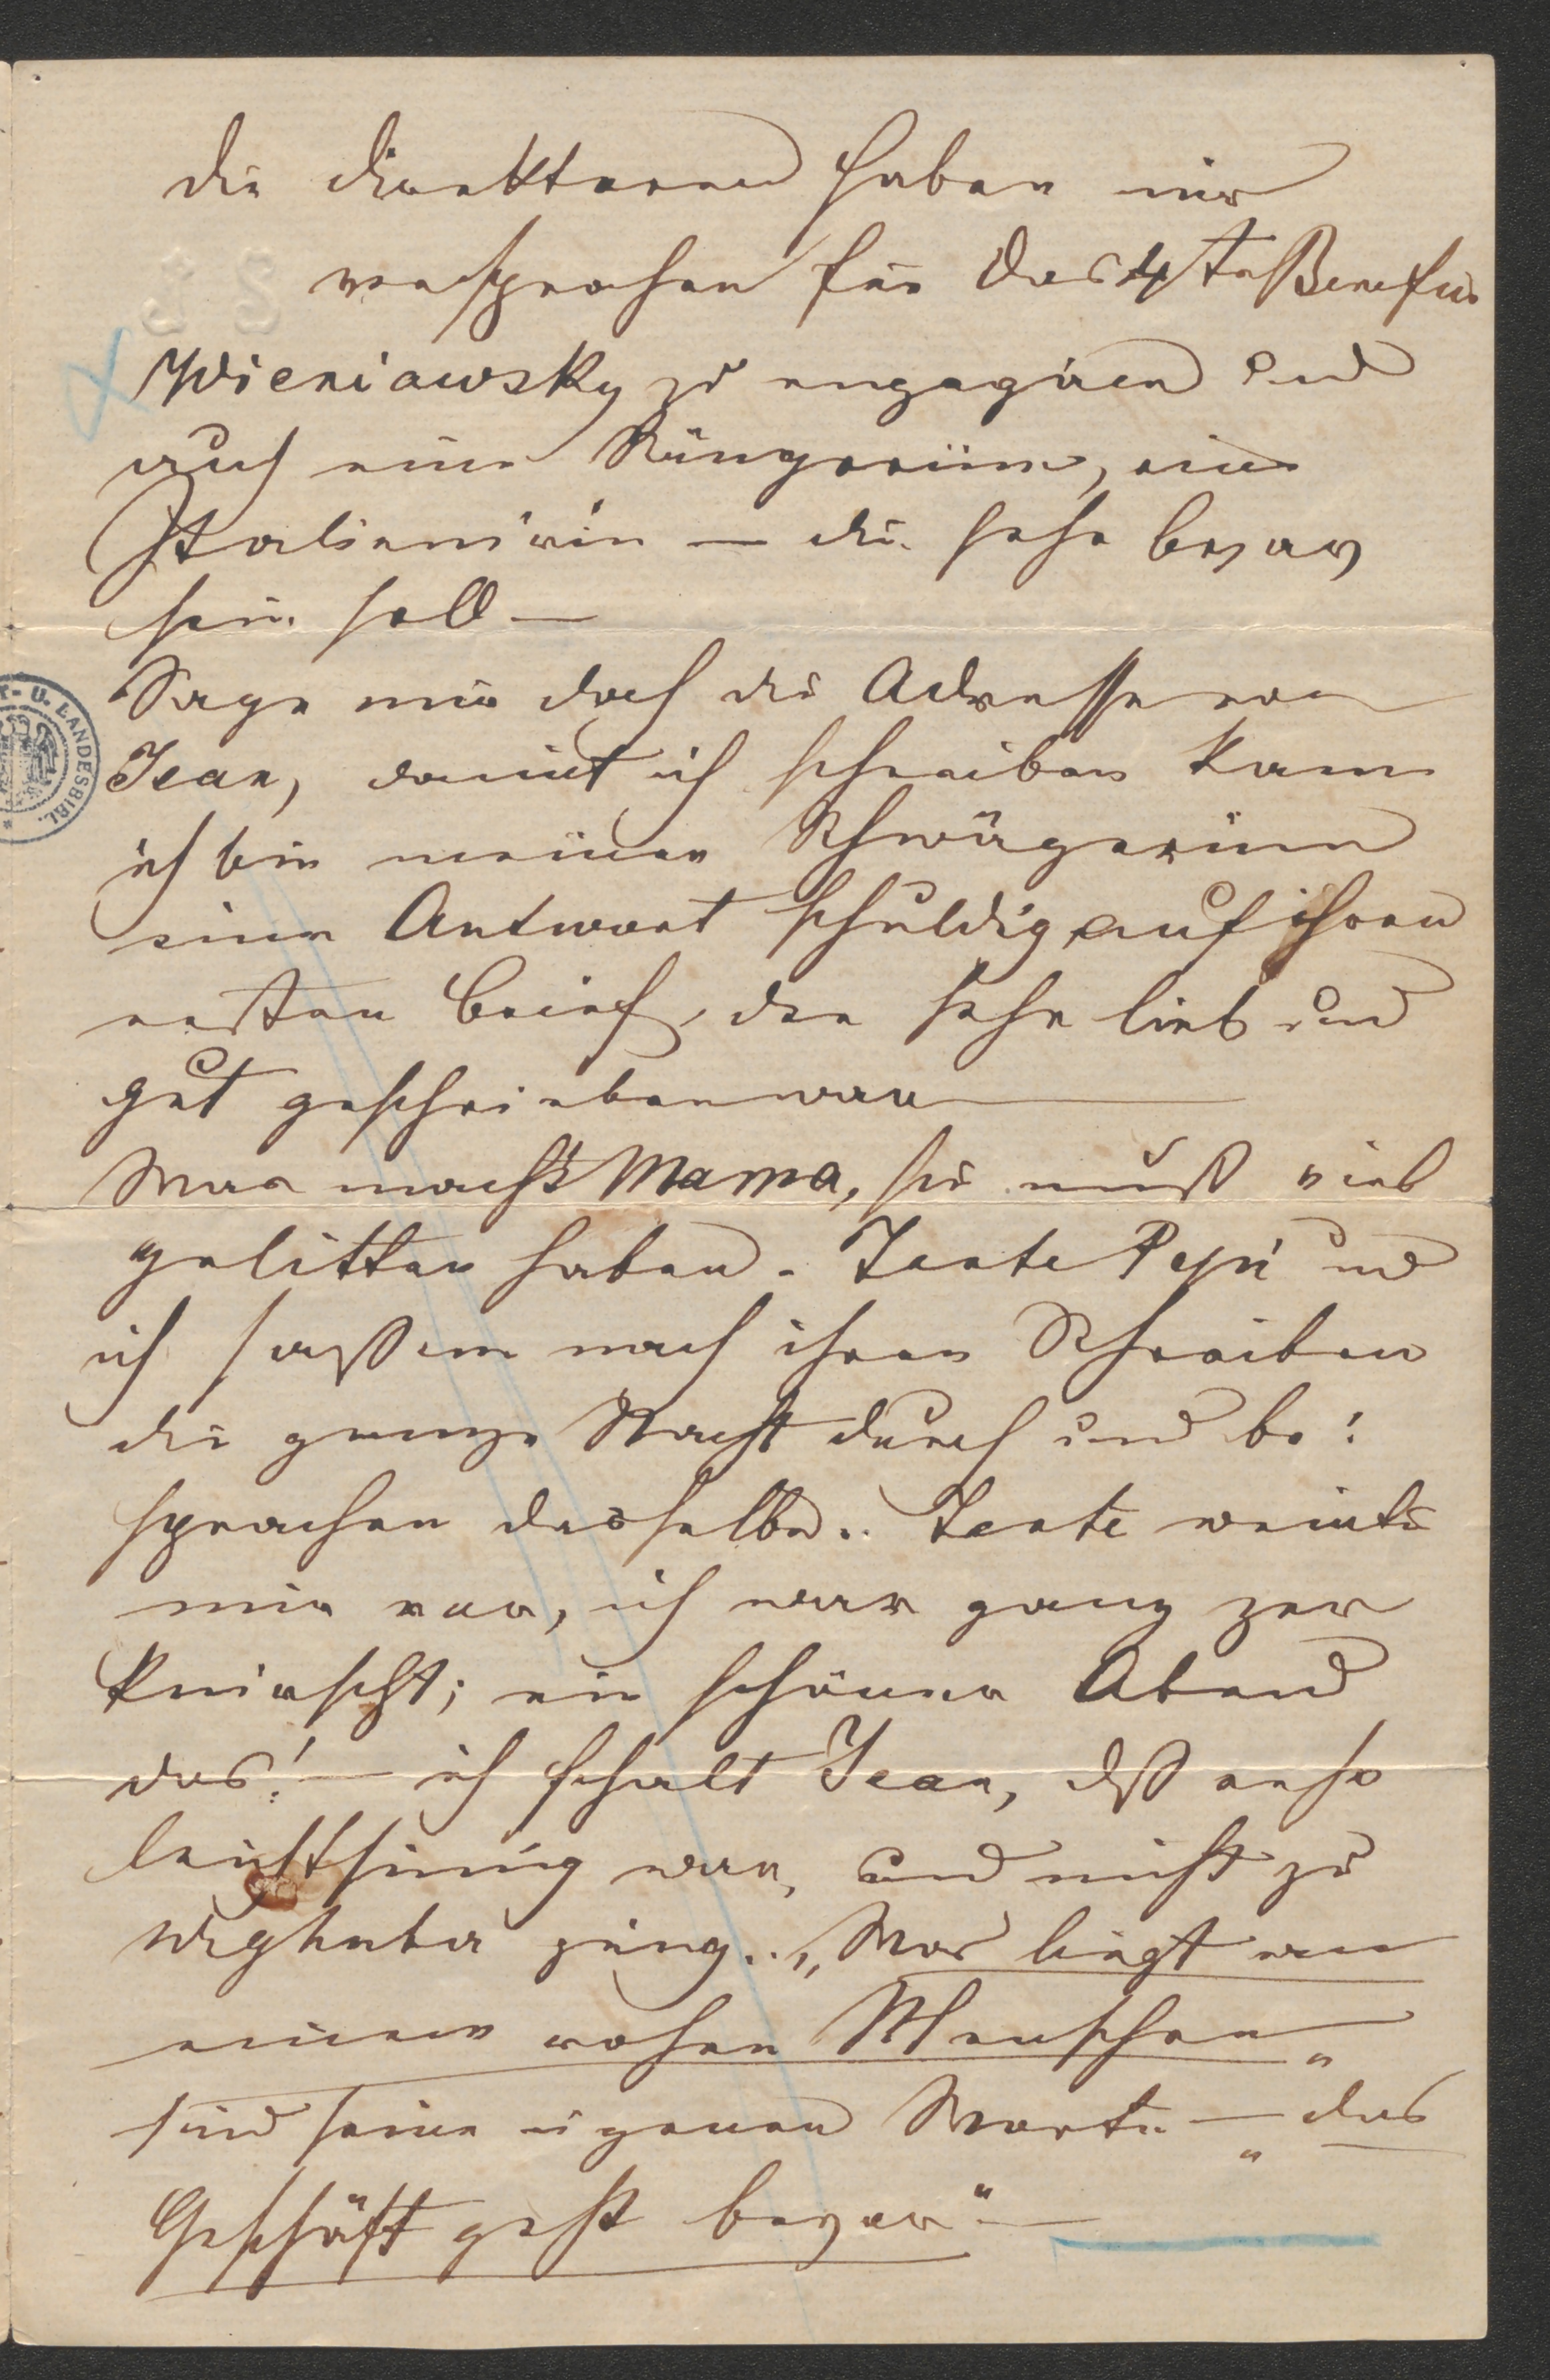 die Direktoren haben mir
versprochen für das 4te Benefiz
Wieniawsky zu engagiren und
auch eine Sängerinn, eine
Italienerin — die sehr brav
sein soll —
Sage mir doch die Adresse von
Jean, damit ich schreiben kann
ich bin meiner Schwägerinn
eine Antwort schuldig auf ihren
ersten Brief, der sehr lieb und
gut geschrieben war —
Was macht Mama, sie muß viel
gelitten haben. Tante Pepi und
ich saßen nach ihren Schreiben
die ganze Nacht durch und be:
sprachen dasselbe.. Tante weinte
mir vor, ich war ganz zer
knirscht; ein schöner Abend
das! — ich schalt Jean, dß er so
leichtsinnig war, und nicht zu
ging.. „Was liegt an
einem rohen Menschen“
sind seine eigenen Worte — „das
Geschäft geht brav“ —
T- U. LANDESBIBL.